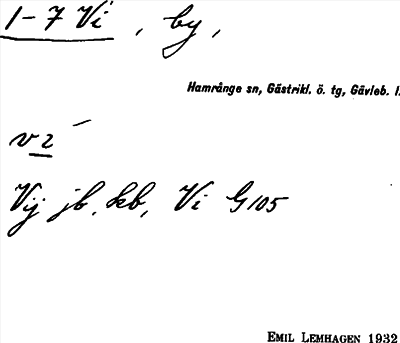 1-7 Vi , by,
Hamrånge sn, Gästrikl. ö. tg, Gävleb. l.
v i´
Vij jb, kb, Vi G105
EMIL LEMHAGEN 1932